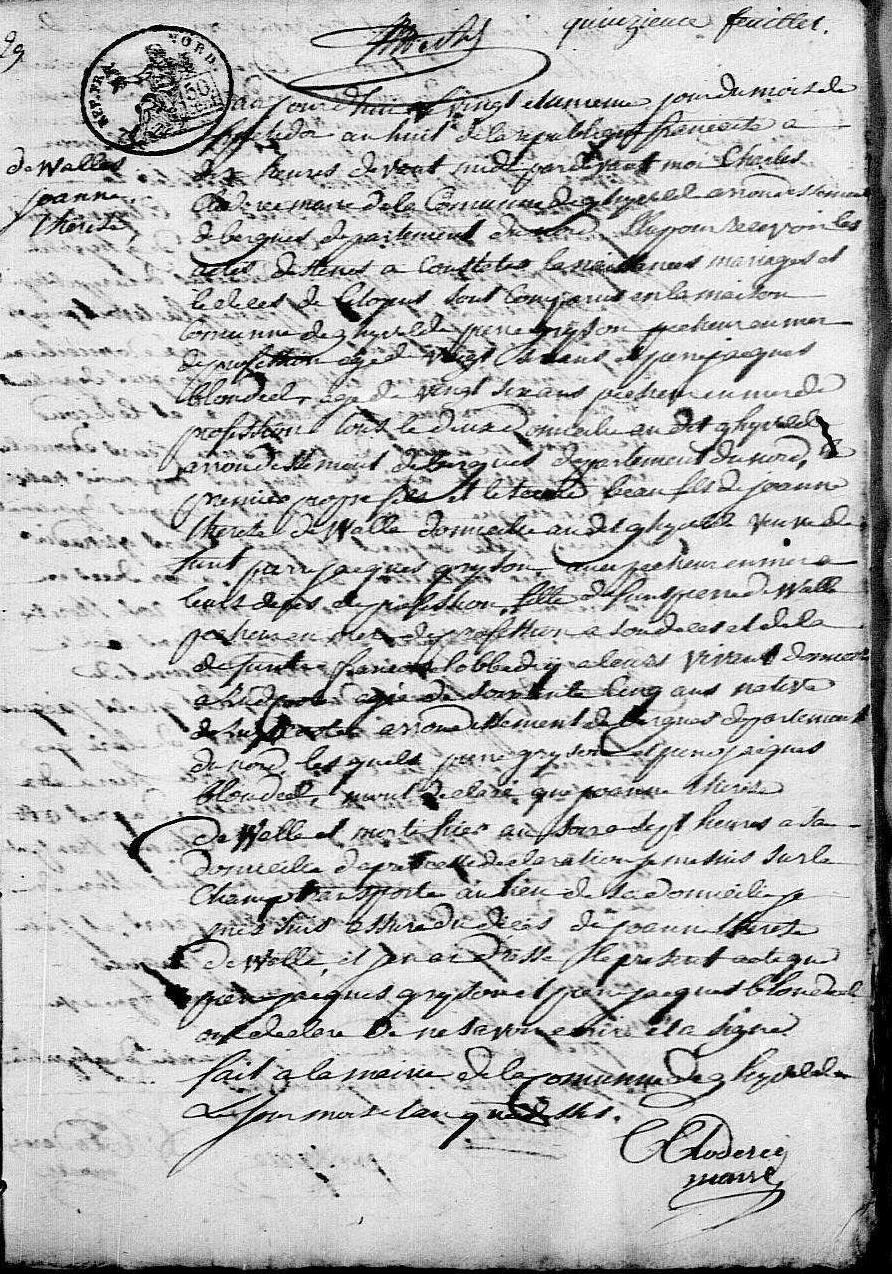 quinzieme feuillet.
29
REP. FRA. NORD.
50
de Walle
joanne
therese
aujourd'hui vingt et unieme jour du mois de
an huit de la republique francaise a
dix heures devant midi pardevant moi Charles
maire de la Commune de ghyvelde arrondissement
de bergues departement du nord Elu pour recevoir les
actes destenes a Constater les naissances mariages et
le deces de Citoyens sont Comparus en la maison
Comunne de ghyvelde pierre gryson pecheur en mer
de profession age de vingt ans et pierre jacques
blondeel, age de vingt six ans pecheur en mer de
profession tous le deux domicilie au dit ghyvelde
arrondissement de bergues departement du nord, le
premier propre fils et le second beau fils de joanne
therese de Walle domicilie au dit ghyvelde veuve de
funt pierre jacques gryson pecheur en mer a
deces de profession fille de funt pierre de Walle
pecheur en mer de profession a son deces et de la
defunte a leurs vivant domicilie
a agee de soixante Cinq ans native
de arrondissement de bergues departement
du nord, les quels pierre gryson et pierre jacques
blondeel, m'ont declare que joanne therese
de Walle est morte hier au soir a sept heures a sa
domicilie d'apres cette declaration je me suis sur le
Champ transporte au lieu de sa domicilie je
mes suis assure du deces de joanne therese
de Walle, et j'en ai dresse le present acte que
pierre jacques gryson et pierre jacques blondeel
ont declare de ne savoir ecrire et a signe
fait a la mairie de la Comunne de ghyvelde
Le jour mois et an que dessus.
maire